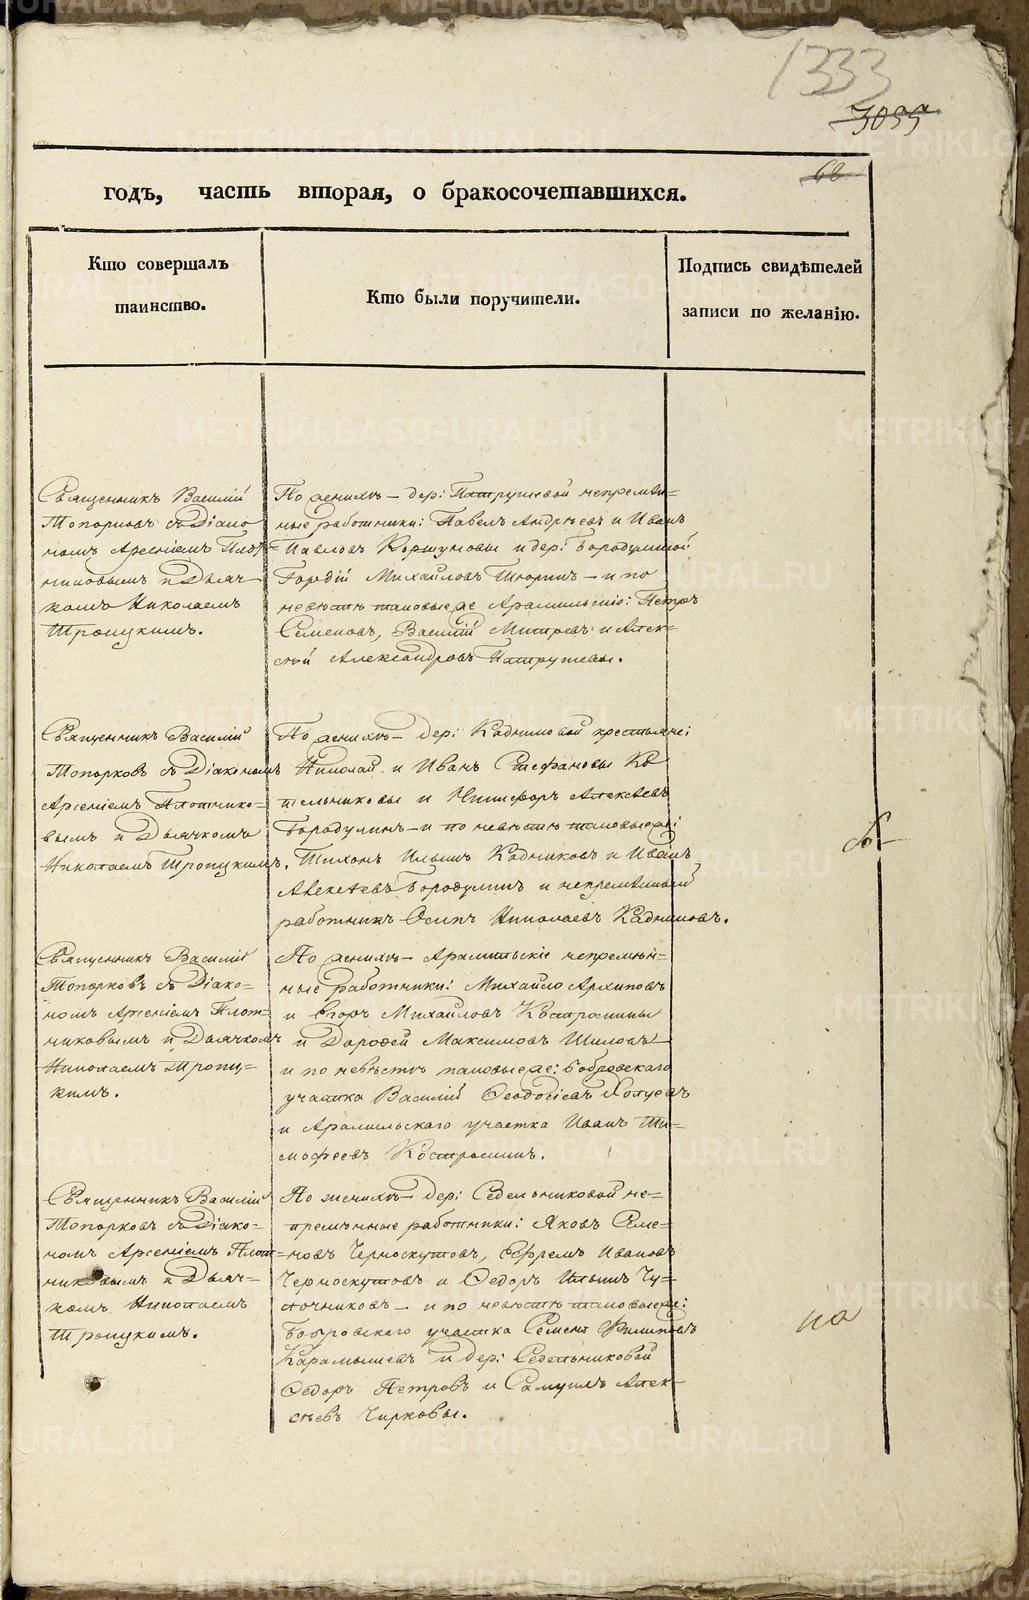 1333
3055
68
годъ, часть вторая, о бракосочетавшихся.
Кто совершалъ
таинство.
Кто были поручители.
Подпись свидѣтелей
записи по желанію.
Священникъ Василій
Топорковъ съ Діако
номъ Арсеніемъ Плот
никовымъ и Дьяч
комъ Николаемъ
Троицкимъ.
По женихѣ – дер: Патрушевой непремѣн=
ные работники: Павелъ Андрѣевъ и Иванъ
Павловъ Коршуновы и дер: Бородулиной
Гордій Михайловъ Тюринъ – и по
невѣстѣ таковые же Арамильскіе: Петръ
Семеновъ, Василій Митревъ и Алек=
сѣй Александровъ Патрушевы.
Священникъ Василій
Топорковъ съ Діакономъ
Арсеніемъ Плотнико=
вымъ и Дьячкомъ
Николаемъ Троицкимъ.
По женихѣ – дер: Кадниковой крестьяне:
Николай и Иванъ Стефановы Ко
тельниковы и Никифоръ Алексѣевъ
Бородулинъ – и по невѣстѣ таковые же:
Тихонъ Ильинъ Кадниковъ и Иванъ
Алексѣевъ Бородулинъ и непремѣнный
работникъ Осипъ Николаевъ Кадниковъ.
Священникъ Василій
Топорковъ съ Діако=
номъ Арсеніемъ Плот=
никовымъ и Дьячкомъ
Николаемъ Троиц=
кимъ.
По женихѣ – Арамильскіе непремѣн=
ные работники: Михайло Архиповъ
и Егоръ Михайловъ Костромины
и Дорофей Максимовъ Шиловъ –
и по невѣстѣ таковые же: Бобровскаго
участка Василій Ѳеодосіевъ
и Арамильскаго участка Иванъ Ти=
мофеевъ Костроминъ.
Священникъ Василій
Топорковъ съ Діако=
номъ Арсеніемъ Плот=
никовымъ и Дьяч=
комъ Николаемъ
Троицкимъ.
По женихѣ – дер: Седельниковой не=
премѣнные работники: Яковъ Семе=
новъ Черноскутовъ, Ефремъ Ивановъ
Черноскутовъ и Ѳедоръ Ильинъ Чу=
сточниковъ – и по невѣстѣ таковые же:
Бобровскаго участка Семенъ Филиповъ
Карамышевъ и дер: Седельниковой
Ѳедоръ Петровъ и Самуилъ Алек=
сѣевъ Чирковы.
на
METRIKI.GASO-URAL.RU